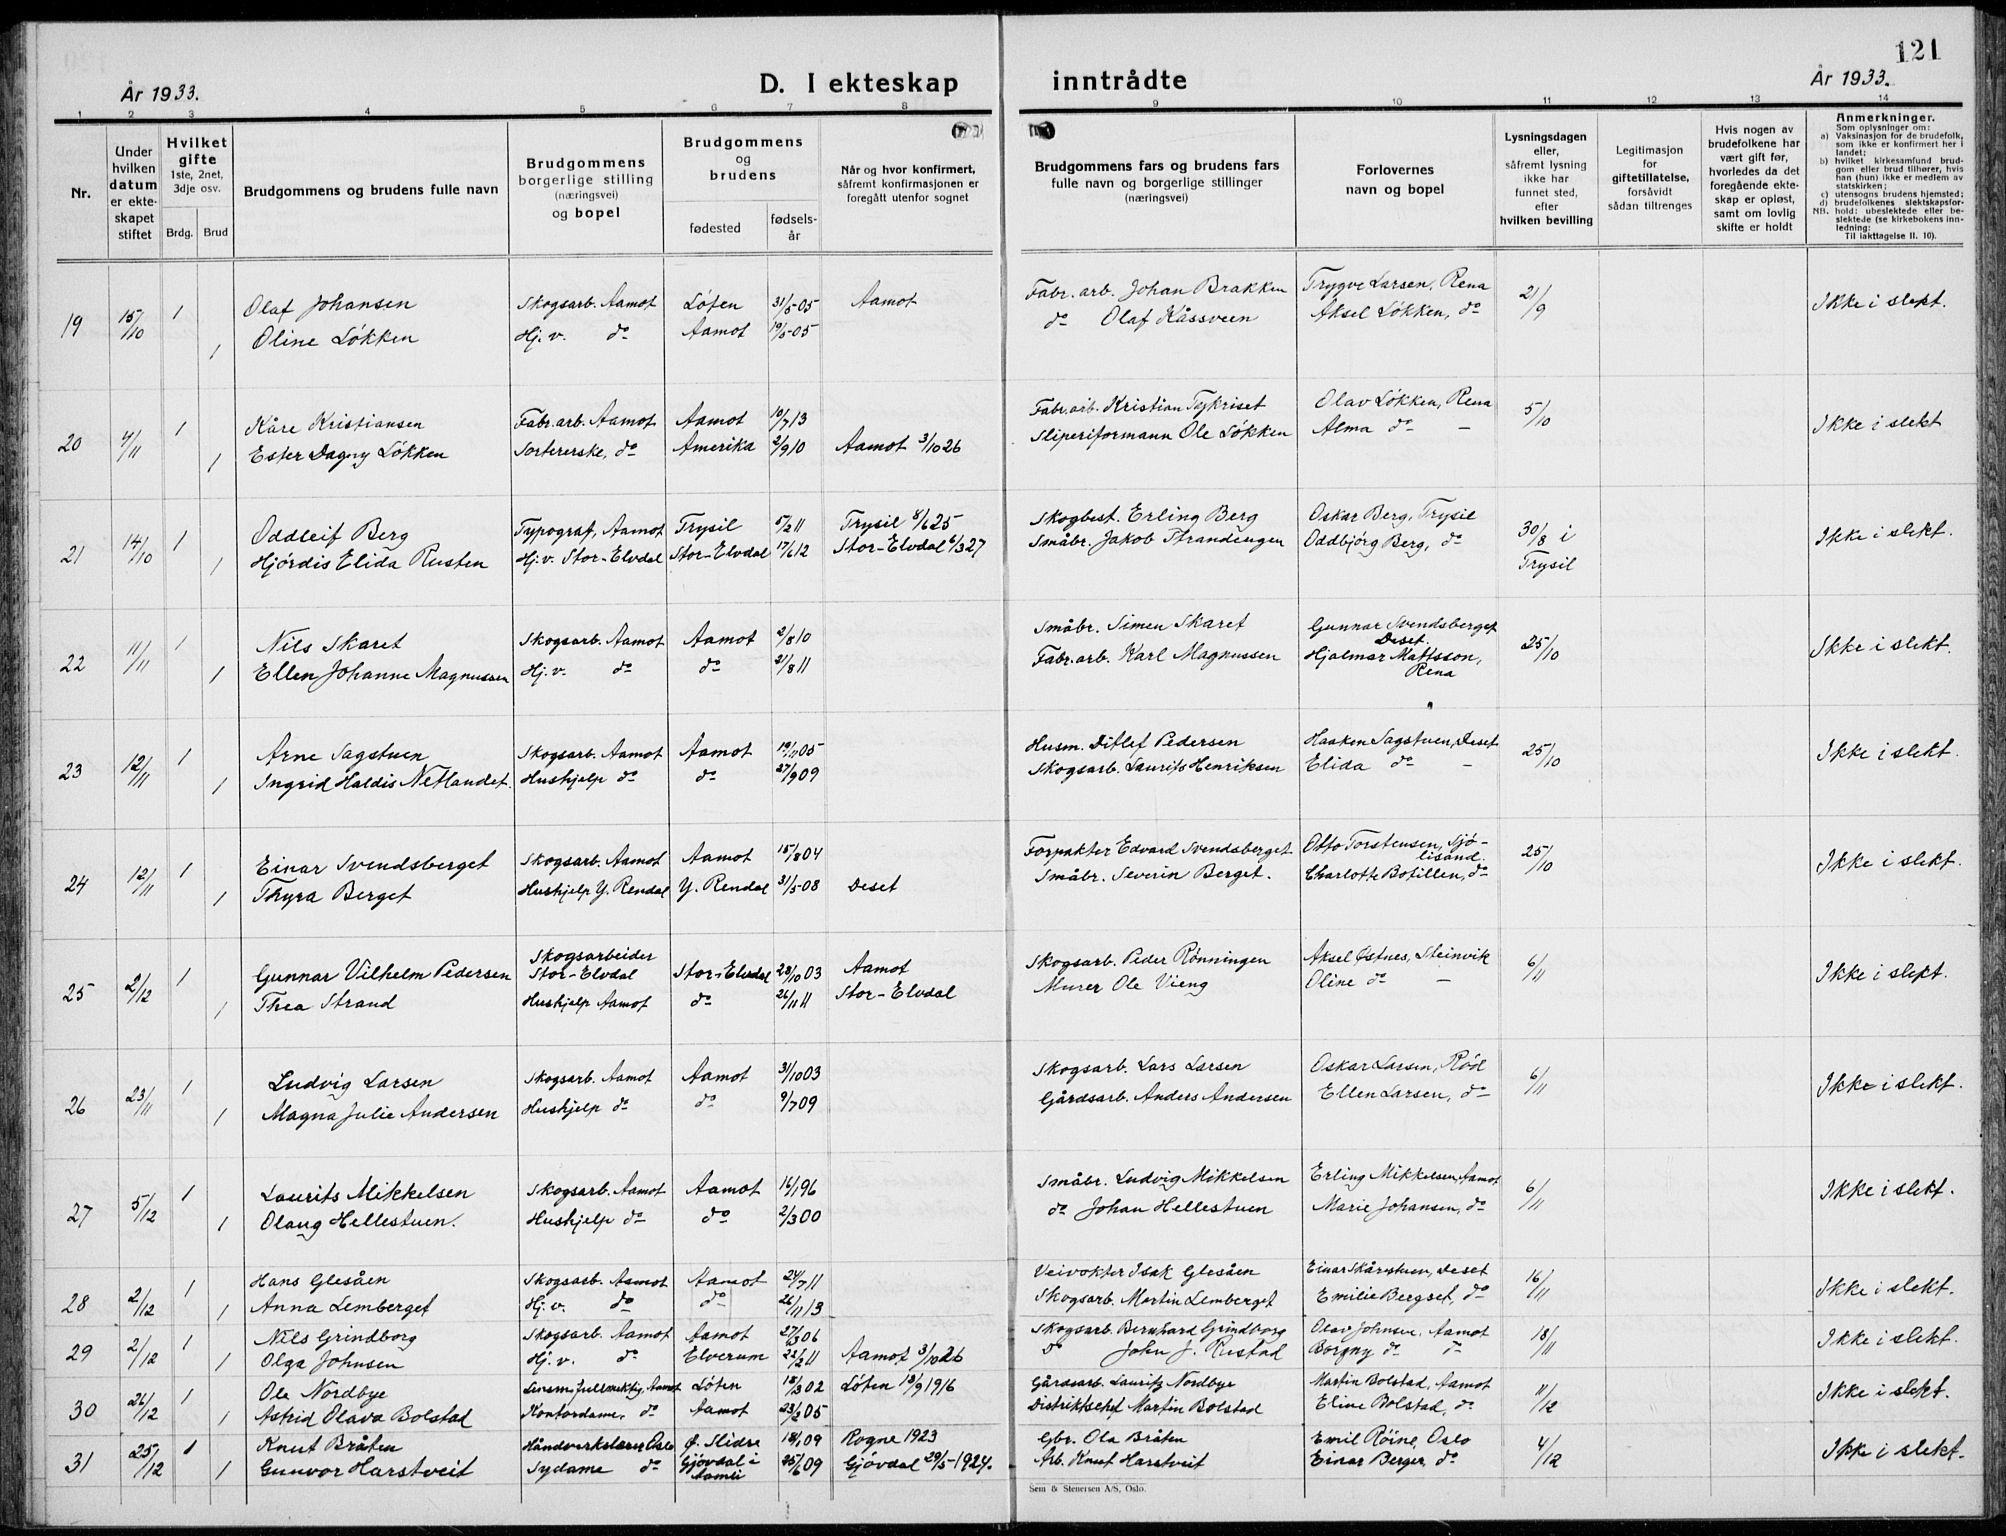 121
År 1933.
D. I ekteskap inntrådte
År 1933.
1 2 3 4 5 6 7 8 9 10 11 12 13 14
Nr.
Under hvilken datum er ekteskapet stiftet
Hvilket gifte
1ste, 2net, 3dje osv.
Brdg. Brud
Brudgommens og brudens fulle navn
Brudgommens borgerlige stilling (næringsvei) og bopel
Brudgommens og brudens
fødested
fødselsår
Når og hvor konfirmert, såfremt konfirmasjonen er foregått utenfor sognet
Brudgommens fars og brudens fars fulle navn og borgerlige stillinger (næringsvei)
Forlovernes navn og bopel
Lysningsdagen eller, såfremt lysning ikke har funnet sted, efter hvilken bevilling
Legitimasjon for giftetillatelse, forsåvidt sådan tiltrenges
Hvis nogen av brudefolkene har vært gift før, hvorledes da det foregående ekteskap er opløst, samt om lovlig skifte er holdt
Anmerkninger.
Som oplysninger om:
a) Vaksinasjon for de brudefolk, som ikke er konfirmert her i landet;
b) hvilket kirkesamfund brudgom eller brud tilhører, hvis han (hun) ikke er medlem av statskirken;
c) utensogns brudens hjemsted;
d) brudefolkenes slektskapsforhold: ubeslektede eller beslektede (se kirkebokens innledning:
NB.
Til iakttagelse II. 10).
19 15/10 1 Olaf Johansen Skogsarb. Aamot Løten 31/5-05 Aamot Fabr. arb. Johan Brakken Trygve Larsen, Rena 21/9 Ikke i slekt.
1 Oline Løkken Hj. v. do Aamot 19/5-05 do Olaf Kåssveen Aksel Løkken, do
20 4/11 1 Kåre Kristiansen Fabr. arb. Aamot Aamot 10/7 13 Fabr. arb. Kristian Tykriset Olav Løkken, Rena 5/10 Ikke i slekt
1 Ester Dagny Løkken Sortererske, do Amerika 2/9 10 Aamot 3/10 26 Sliperiformann Ole Løkken Alma do -
21 14/10 1 Oddleif Berg Typograf, Aamot Trysil 5/2 11 Trysil 8/6 25 Skogbest. Erling Berg Oskar Berg, Trysil 30/8 i Trysil Ikke i slekt.
1 Hjørdis Elida Rusten Hj. v. Stor-Elvdal Stor-Elvdal 17/6 12 Stor-Elvdal 6/3 27 Småbr. Jakob Strandengen Oddbjörg Berg, do
22 11/11 1 Nils Skaret Skogsarb. Aamot Aamot 2/8 10 Småbr. Simen Skaret Gunnar Svendsberget Deset 25/10 Ikke i slekt.
1 Ellen Johanne Magnussen Hj. v. do do 21/8 11 Fabr. arb. Karl Magnussen Hjalmar Mattsson, Rena
23 12/11 1 Arne Sagstuen Skogsarb. Aamot Aamot 19/11 05 Husm. Ditlef Pedersen Haaken Sagstuen, Deset 25/10 Ikke i slekt.
1 Ingrid Haldis Netlandet. Hushjelp do do 27/9 09 Skogsarb. Laurits Henriksen Elida do -
24 12/11 1 Einar Svendsberget Skogsarb. Aamot Aamot 15/8 04 Forpakter Edvard Svendsberget Otto Torstensen, Sjölisand. 25/10 Ikke i slekt.
1 Thyra Berget Hushjelp Y. Rendal Y. Rendal 31/5-08 Deset Småbr. Severin Berget. Charlotte Botillen, do
25 2/12 1 Gunnar Vilhelm Pedersen Skogsarbeider Stor-Elvdal Stor-Elvdal 28/10 03 Aamot Skogsarb. Peder Rønningen Aksel Østnes, Steinvik 6/11 Ikke i slekt.
1 Thea Strand Hushjelp Aamot do 26/11 11 Stor-Elvdal Murer Ole Vieng Oline do -
26 23/11 1 Ludvig Larsen Skogsarb. Aamot Aamot 31/10 03 Skogsarb. Lars Larsen Oskar Larsen, Röd 6/11 Ikke i slekt.
1 Magna Julie Andersen Hushjelp do do 9/7 09 Gårdsarb. Anders Andersen Ellen Larsen, do
27 5/12 1 Laurits Mikkelsen Skogsarb. Aamot Aamot 16/1 96 Småbr. Ludvig Mikkelsen Erling Mikkelsen, Aamot 6/11 Ikke i slekt.
1 Olaug Hellestuen. Hushjelp do do 2/3 00 do Johan Hellestuen Marie Johansen, do
28 2/12 1 Hans Glesåen Skogsarb. Aamot Aamot 24/7 11 Veivokter Isak Glesåen Einar Skårstuen, Deset 16/11 Ikke i slekt.
1 Anna Lemberget Hj. v. do do 26/11 13 Skogsarb. Martin Lemberget Emilie Bergset, do
29 2/12 1 Nils Grindborg Skogsarb. Aamot Aamot 27/3 06 Skogsarb. Bernhard Grindborg Olav Johnsen, Aamot 18/11 Ikke i slekt.
1 Olga Johnsen Hj. v. do Elverum 22/2 11 Aamot 3/10 26 do John J. Rustad Borgny do do
30 26/12 1 Ole Nordbye Lensm. fullmektig, Aamot Løten 18/3 02 Løten 13/9 1916 Gårdsarb. Lauritz Nordbye Martin Bolstad, Aamot 11/12 Ikke i slekt.
1 Astrid Olava Bolstad Kontordame, do Aamot 23/2 05 Distriktschef Martin Bolstad Eline Bolstad, do
31 25/12 1 Knut Bråten Håndverkslærer Oslo Ø. Slidre 18/1 09 Rogne 1923 Gbr. Ola Bråten Emil Röine, Oslo 4/12 Ikke i slekt.
1 Gunvor Harstveit Sydame do Gjøvdal i Aamli 25/6 09 Gjövdal 29/5-1924. Arb. Knut Harstveit Einar Berger, do
Sem & Stenersen A/S, Oslo.